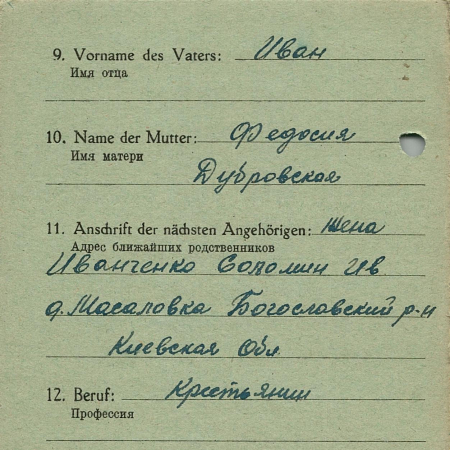 9. Vorname des Vaters: Иван
Имя отца
10. Name der Mutter: Федосия
Имя матери
Дубровская
11. Anschrift der nächsten Angehörigen: жена
Адрес ближайших родственников
Иванченко Соломин Ив
д. Масаловка Богославский р-н
Киевская Обл
12. Beruf: Крестьянин
Профессия